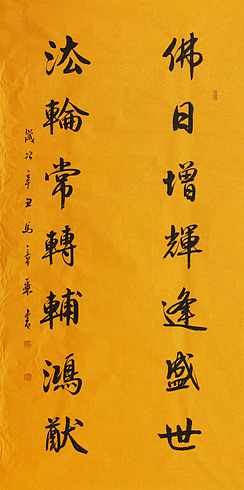 佛日增輝逢盛世
法輪常轉輔鴻猷
歲次辛丑馬三章乘書